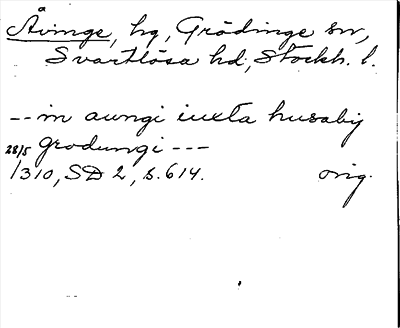 Åvinge, hg, Grödinge sn,
Svartlösa hd, Stockh. l.
-- in aungi iuxta husaby
grodungi ---
28/5 1310, SD 2, s. 614. orig.